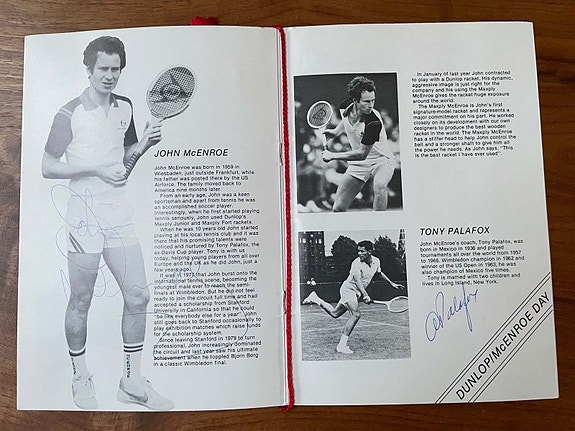 JOHN McENROE
John McEnroe was born in 1959 in
Wiesbaden, just outside Frankfurt, while
his father was posted there by the US
Airforce. The family moved back to
America nine months later.
From an early age, John was a keen
sportsman and apart from tennis he was
an accomplished soccer player.
Interestingly, when he first started playing
tennis seriously, John used Dunlop's
Maxply Junior and Maxply Fort rackets.
When he was 10 years old John started
playing at his local tennis club and it was
there that his promising talents were
noticed and nurtured by Tony Palafox, the
ex-Davis Cup player. Tony is with us
today; helping young players from all over
Europe and the UK as he did John, just a
few years ago.
It was in 1977 that John burst onto the
international tennis scene, becoming the
youngest male ever to reach the semi-
finals at Wimbledon. But he did not feel
ready to join the circuit full time and had
accepted a scholarship from Stanford
University in California so that he could
"be like everybody else for a year". John
still goes back to Stanford occasionally to
play exhibition matches which raise funds
for the scholarship system.
Since leaving Stanford in 1979 to turn
professional, John increasingly dominated
the circuit and last year saw his ultimate
achievement when he toppled Bjorn Borg
in a classic Wimbledon final.
In January of last year John contracted
to play with a Dunlop racket. His dynamic,
aggressive image is just right for the
company and his using the Maxply
McEnroe gives the racket huge exposure
around the world.
The Maxply McEnroe is John's first
signature-model racket and represents a
major commitment on his part. He worked
closely on its development with our own
designers to produce the best wooden
racket in the world. The Maxply McEnroe
has a stiffer head to help John control the
ball and a stronger shaft to give him all
the power he needs. As John says, "This
is the best racket I have ever used".
TONY PALAFOX
John McEnroe's coach, Tony Palafox, was
born in Mexico in 1936 and played
tournaments all over the world from 1957
to 1966. Wimbledon champion in 1962 and
winner of the US Open in 1963, he was
also champion of Mexico five times.
Tony is married with two children and
lives in Long Island, New York.
A Palafox
DUNLOP/McENROE DAY